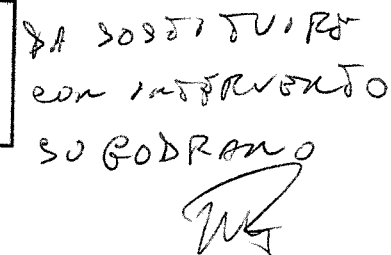 DA SOSTITUIRE
CON INTERVENTO
SU GODRANO